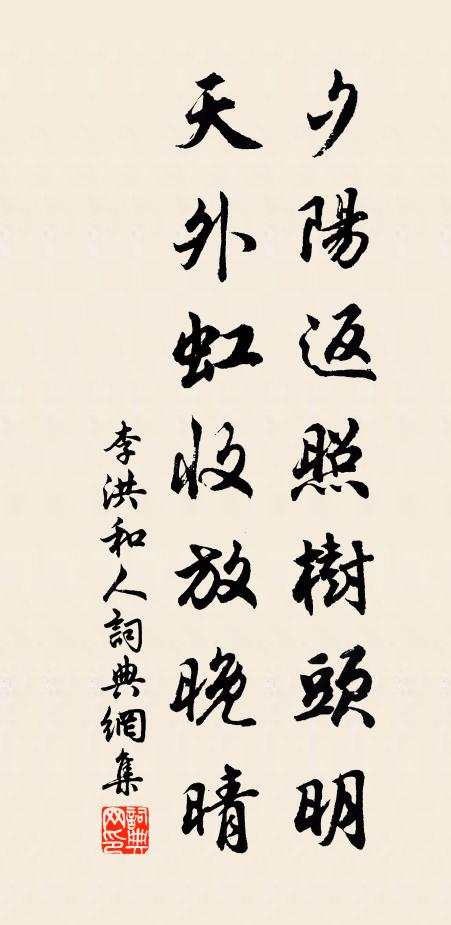 夕陽返照樹頭明
天外虹收放晚晴
李洪和人詞典網集
詞典網印